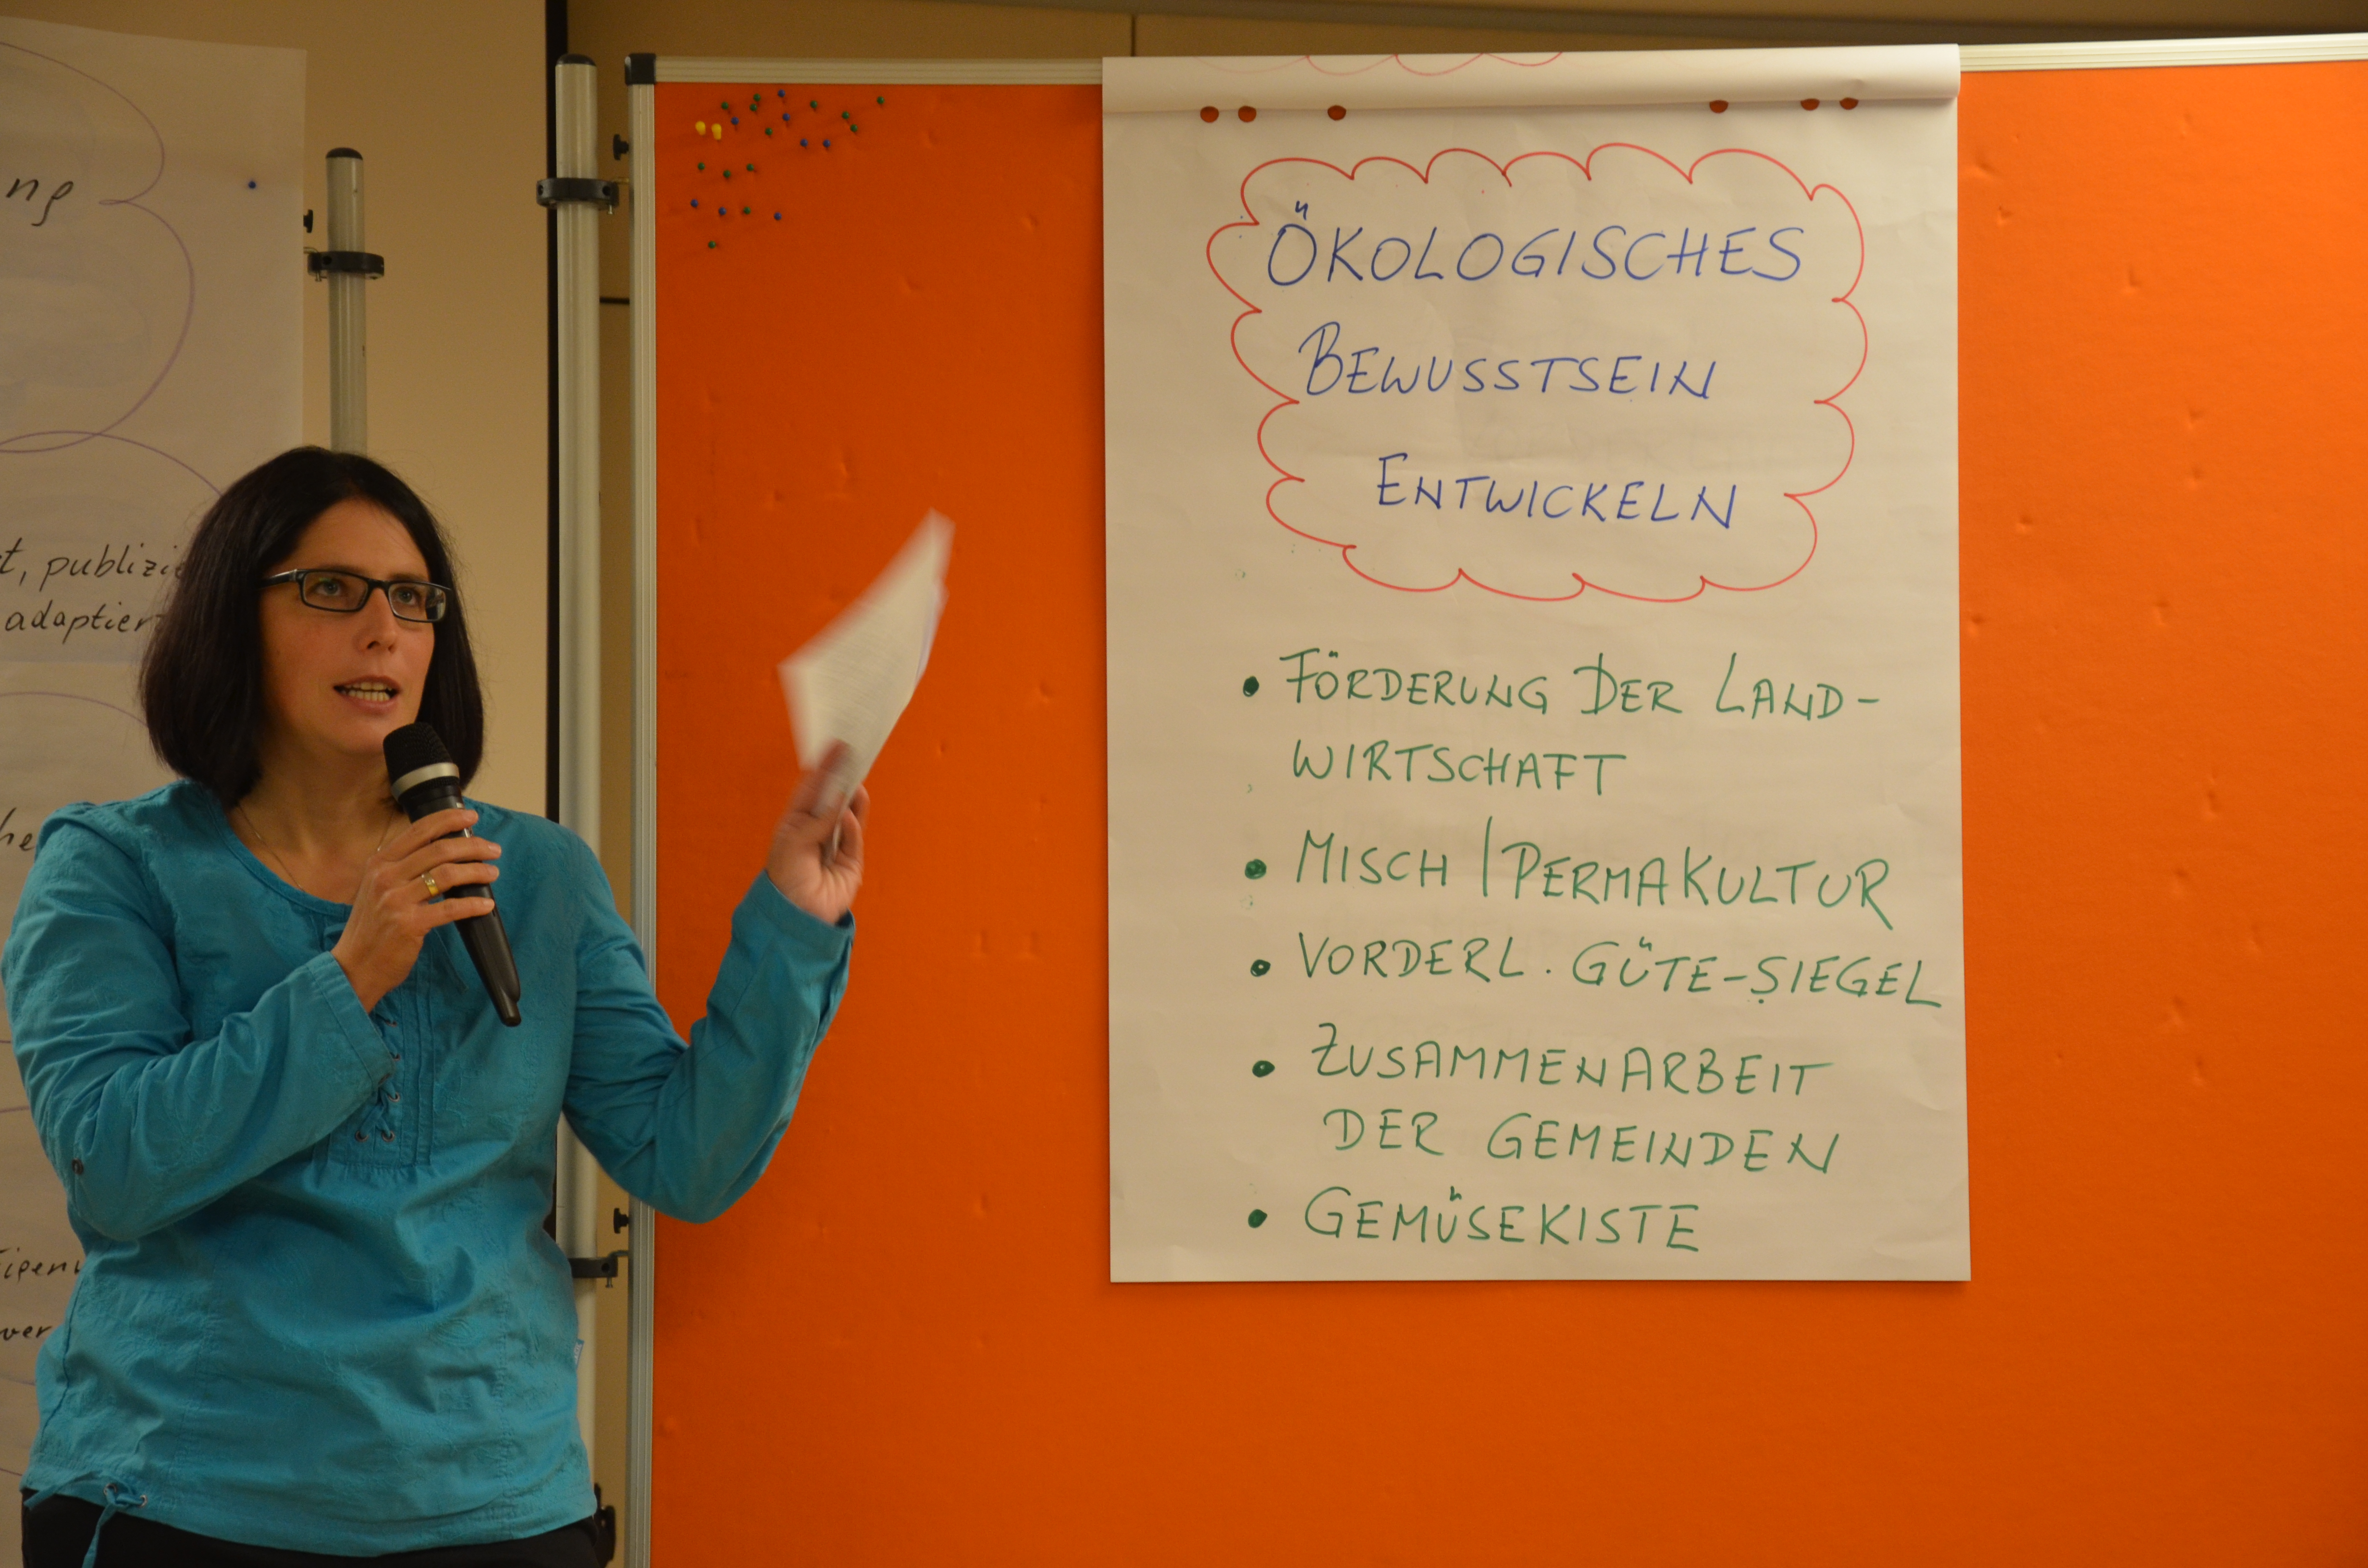 ng
t, publizie
adaptier
he
eigenv
ver
ÖKOLOGISCHES
BEWUSSTSEIN
ENTWICKELN
• FÖRDERUNG DER LAND-
WIRTSCHAFT
• MISCH | PERMAKULTUR
• VORDERL. GÜTE-SIEGEL
• ZUSAMMENARBEIT
DER GEMEINDEN
• GEMÜSEKISTE